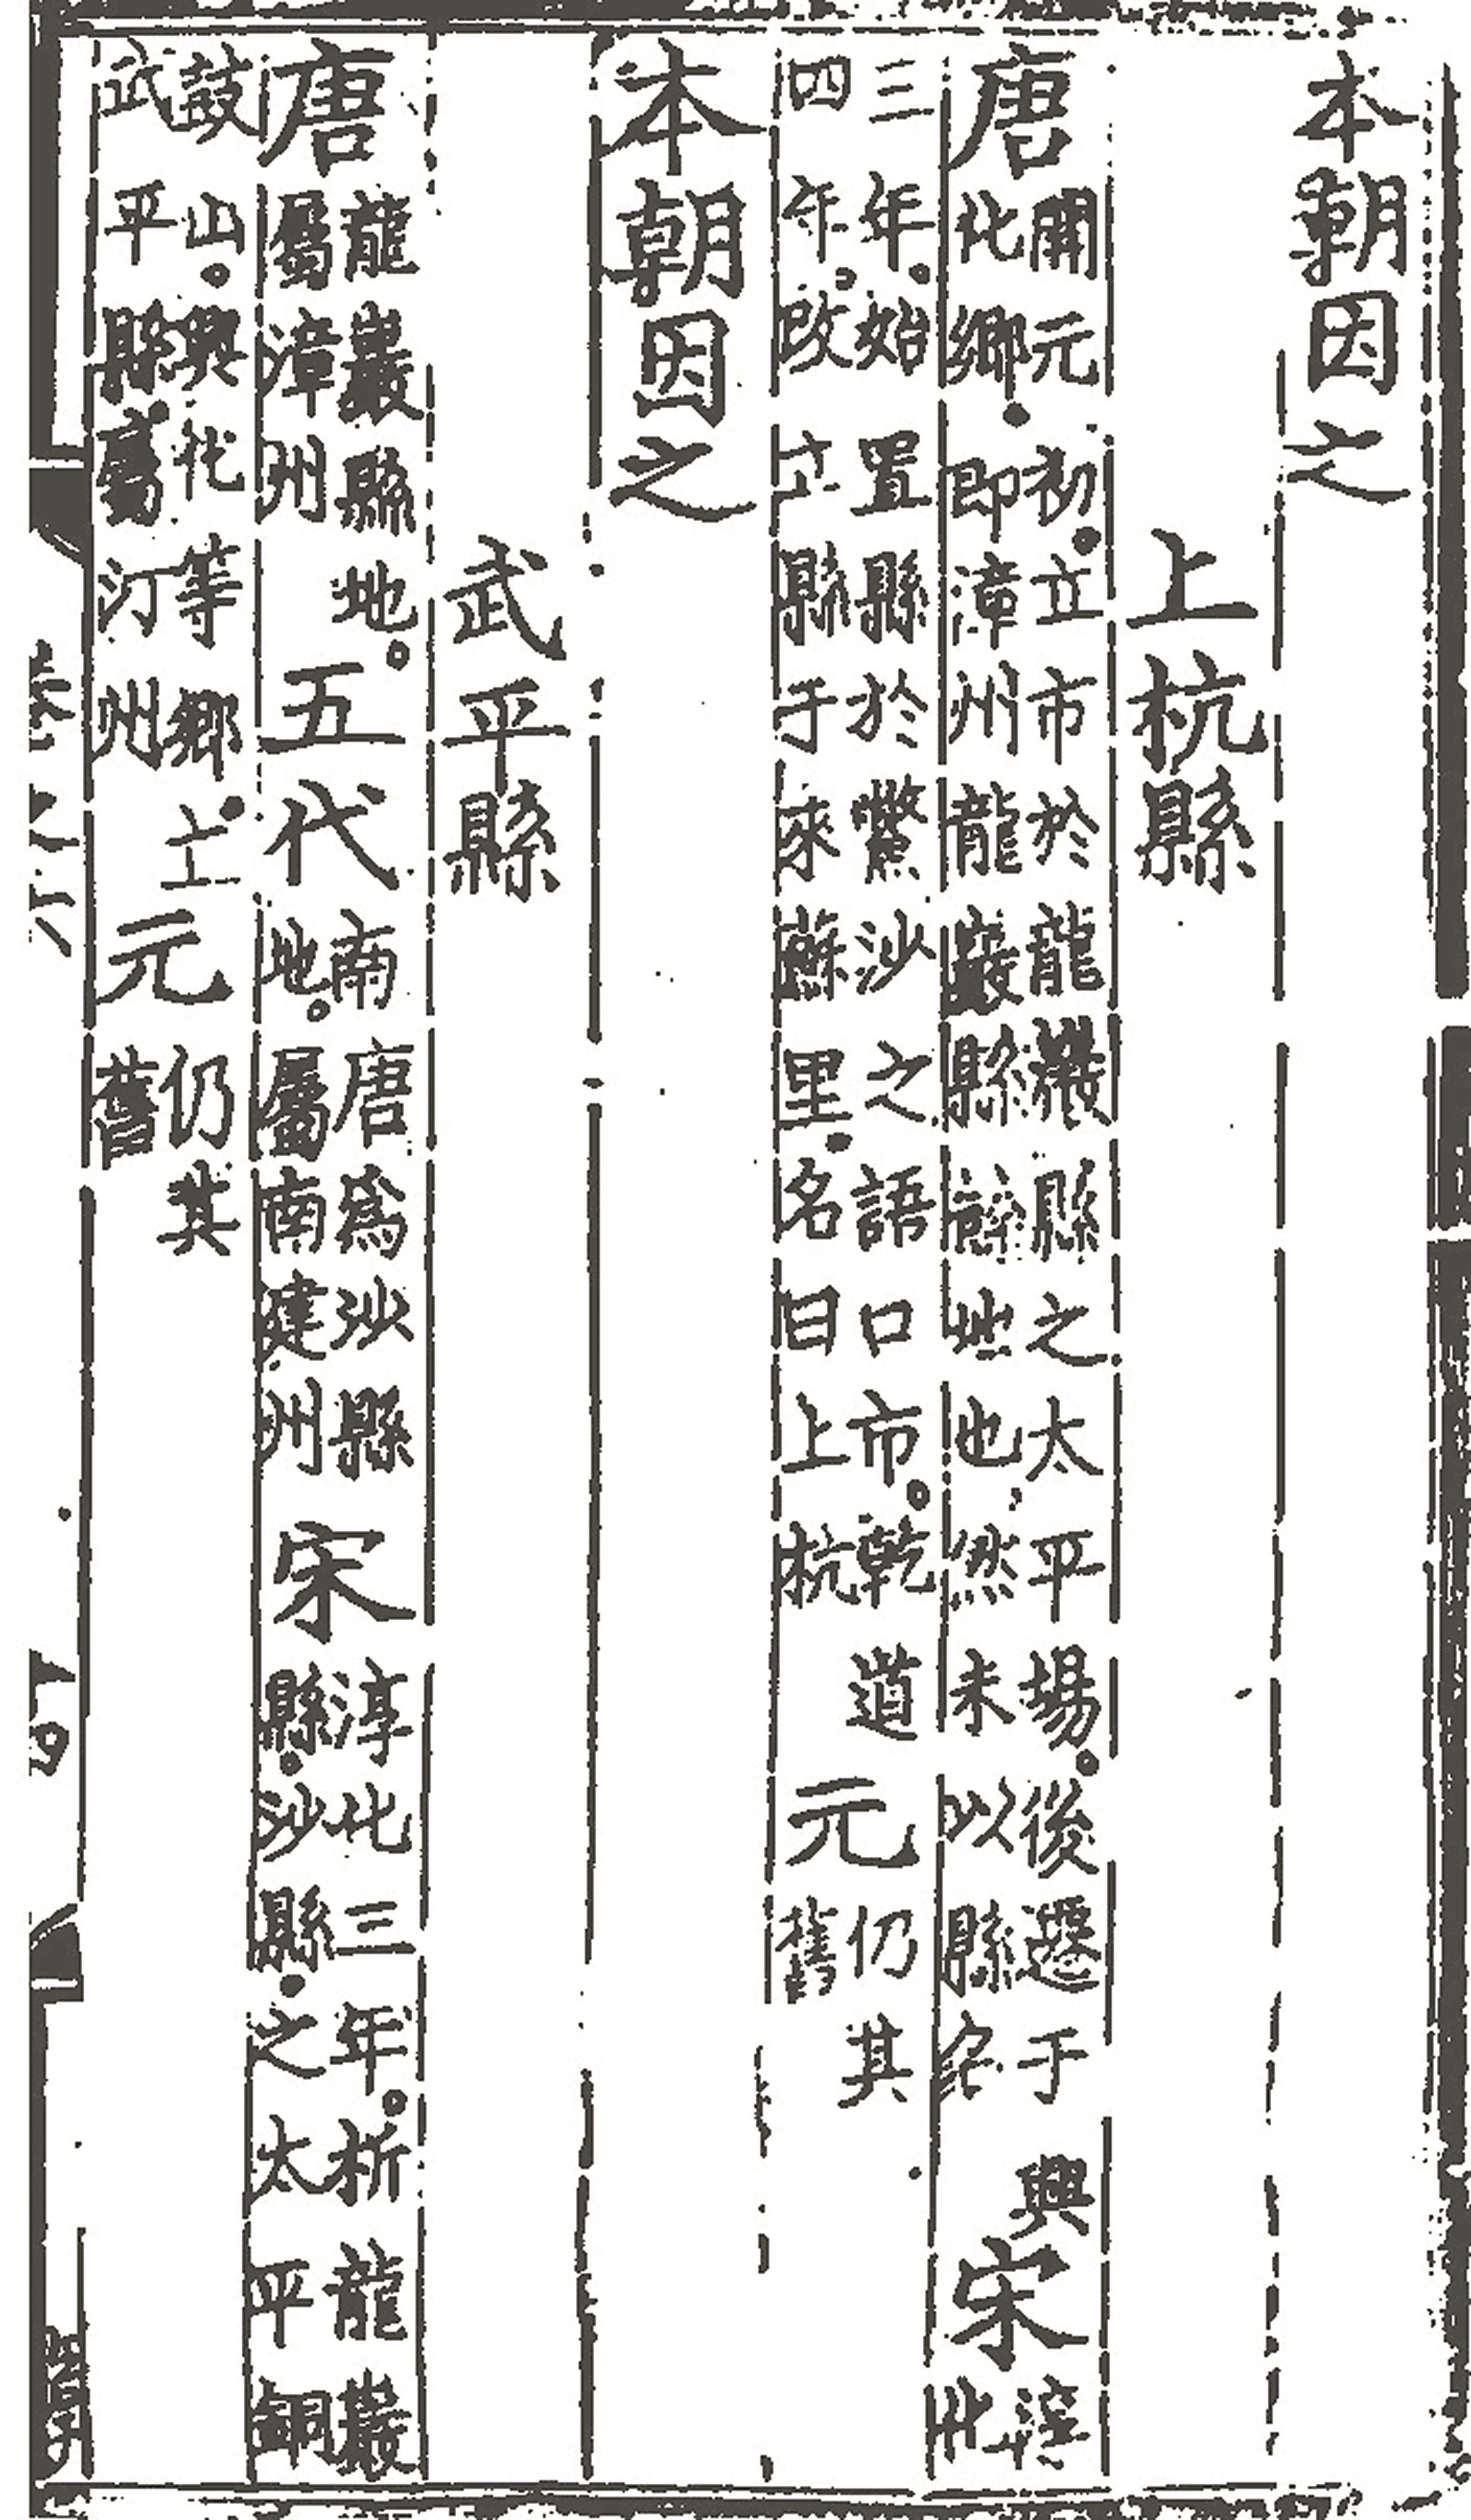 本朝因之
上杭縣
唐開元初。立市於龍巖縣之太平場。後遷于興化鄉。即漳州龍巖縣地也。然未以縣名宋淳化
三年。始置縣於鱉沙之語口市。乾道四年。改立縣于來蘇里。名曰上杭元仍其舊
本朝因之
武平縣
唐龍巖縣地。屬漳州五代南唐爲沙縣地。屬南建州宋淳化三年。析龍巖縣。沙縣。之太平銅
鼓山。興化等鄉。立武平縣屬汀州元仍其舊
卷之六